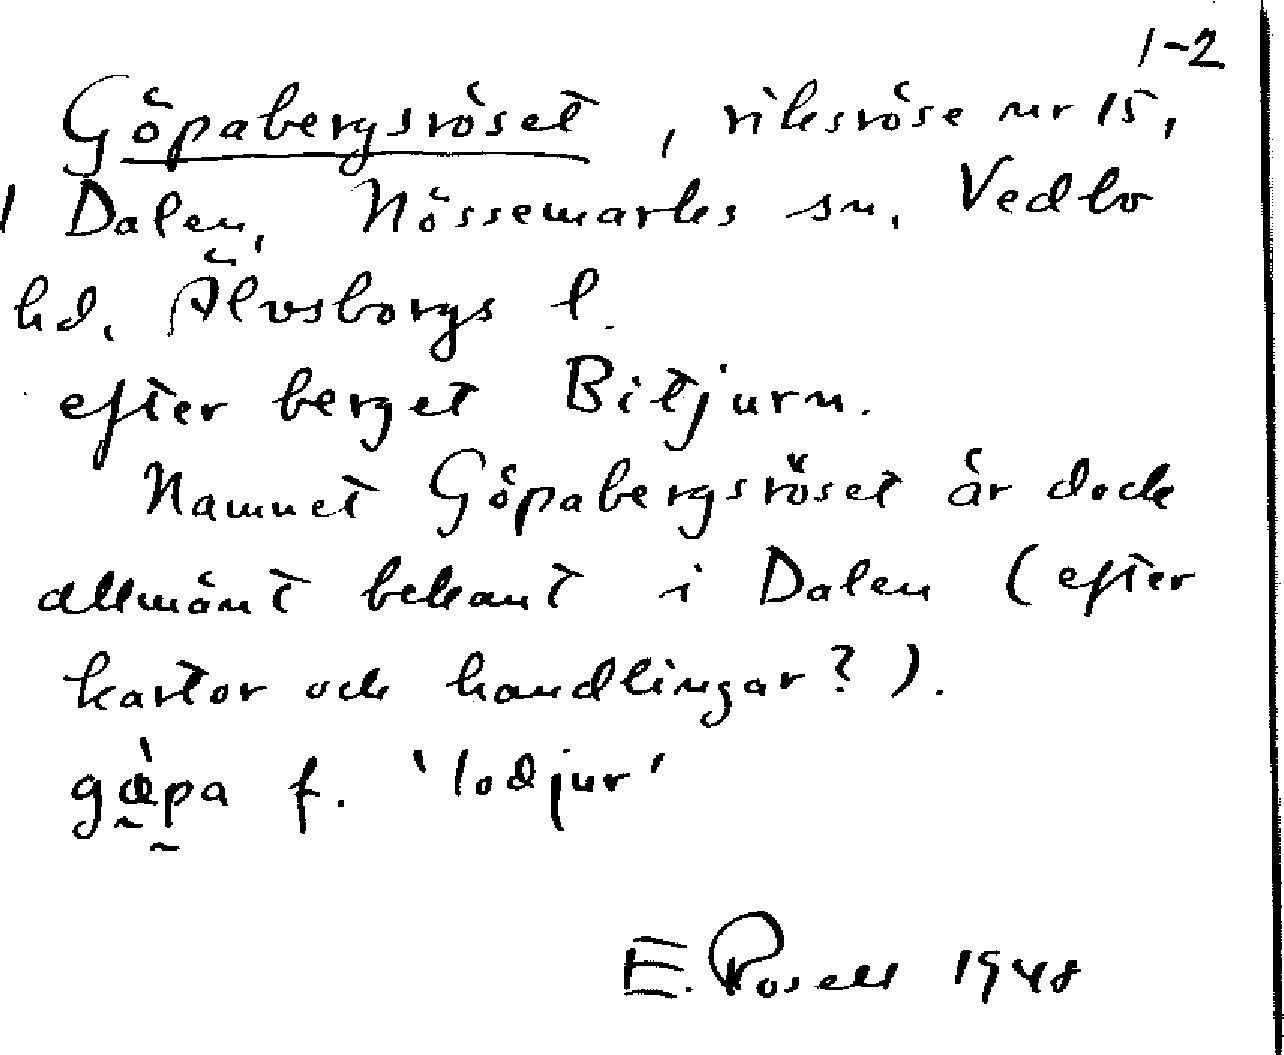 1-2
Göpabergsröset, riksröse nr 15,
1 Dalen, Nössemarks sn, Vedbo
hd. Älvsborgs l.
efter berget Bitjurn.
Namnet Göpabergsröset är dock
allmänt bekant i Dalen (efter
kartor och handlingar?).
gœ̀pa f. 'lodjur'
E. Rosell 1948